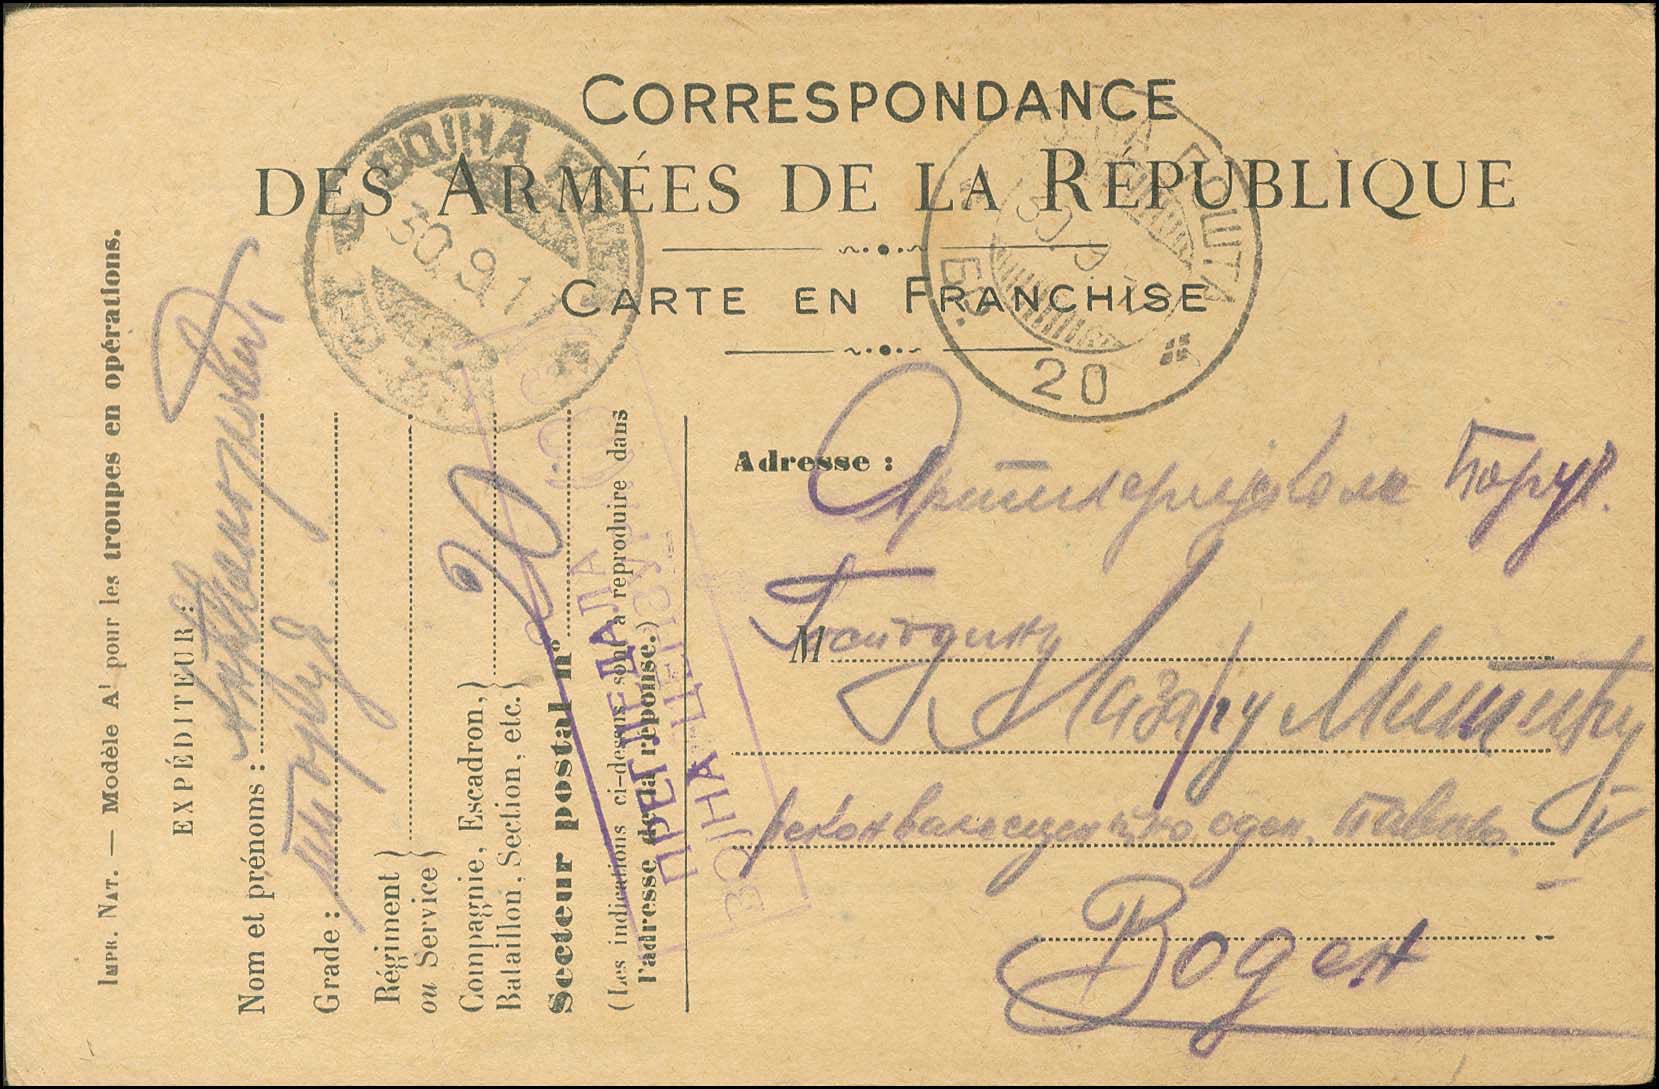 CORRESPONDANCE
DES ARMÉES DE LA RÉPUBLIQUE
CARTE EN FRANCHISE
ВОЈНА
30.9.1
ПОШТА
БР.
20
Impr. Nat. — Modèle A¹ pour les troupes en opérations.
EXPÉDITEUR :
Nom et prénoms :
Grade :
Régiment
ou Service
Compagnie, Escadron,
Bataillon, Section, etc.
Secteur postal n° 20
(Les indications ci-dessus sont à reproduire dans
l'adresse de la réponse.)
ПРЕГЛЕДАЛА
ВОЈНА ЦЕНЗУРА
Adresse :
Артилеријском Поруч.
M Господину
Лазару
реконвалесцентно одел.
Воден